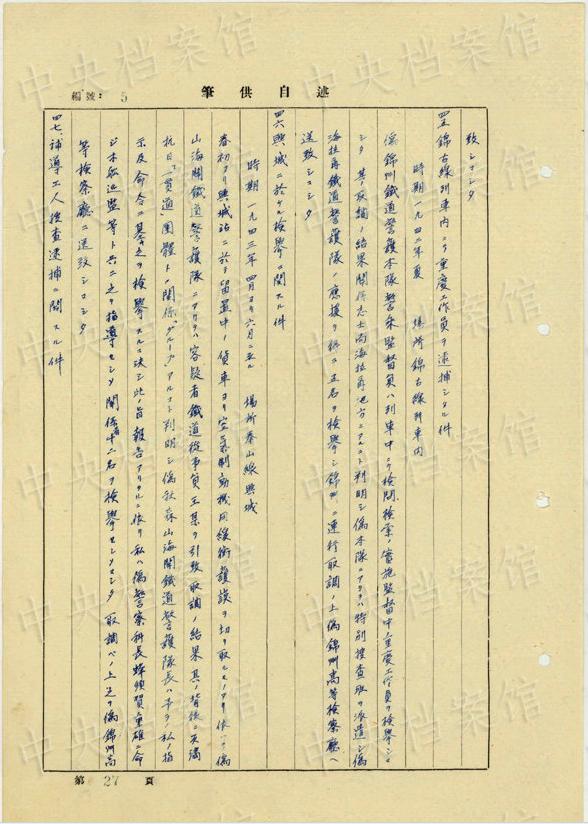 述自供筆
編號：5
致シマシタ
四五、錦古線列車内ニテ重慶工作員ヲ逮捕シタル件
時期 一九四二年夏 場所 錦古線列車内
偽錦州鐵道警護本隊警務監督員ハ列車中ニテ檢問檢索ノ實施監督中重慶工作員ヲ檢擧シマ
シタ 其ノ取調ノ結果關係志士尚海拉爾地方ニアルコト判明シ偽本隊ニアリテハ特別搜査班ヲ派遣シ偽
海拉爾鐵道警護隊ノ應援ヲ得テ五名ヲ檢擧シ錦州ニ連行取調ノ上偽錦州高等檢察廳ヘ
送致シマシタ
四六、興城ニ於ケル檢擧ニ關スル件
時期 一九四三年四月ヨリ六月ニ至ル 場所 奉山線興城
春初メ興城站ニ於テ留置中ノ貨車ヨリ空氣制動機用緩衝護謨ヲ切リ取ルモノアリ依ッテ偽
山海關鐵道警護隊ニアリテハ容疑者鐵道從事員王某ヲ引致取調ノ結果其ノ背後ニ反滿
抗日「一貫道」團體トノ關係「グループ」アルコト判明シ偽秋森山海關鐵道警護隊長ハ予メノ私ノ指
示及命令ニ基キ之ヲ檢擧スルニ決シ此ノ旨報告アリタルニ依リ私ハ偽警察科長蜂須賀重雄ニ命
ジ本配近監等ト共ニ之ヲ指導セシメ關係者十二名ヲ檢擧セシメマシタ 取調ベノ上之ヲ偽錦州高
等檢察廳ニ送致シマシタ
四七、補導工人搜査逮捕ニ關スル件
第 27 頁
中央档案馆